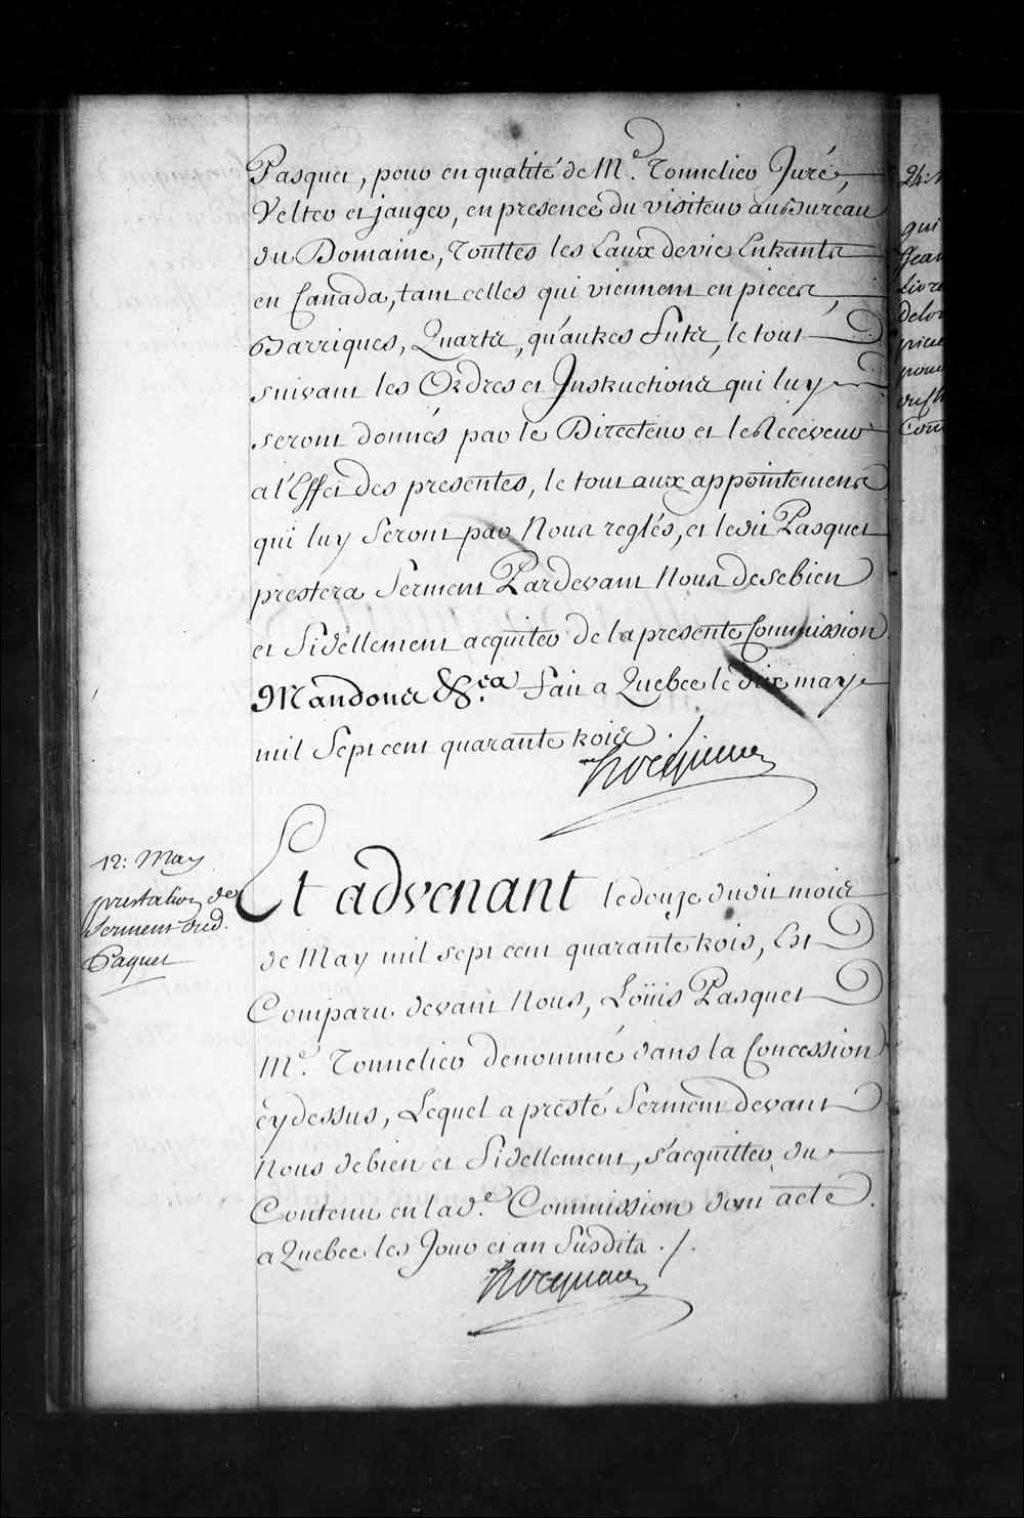 Pasquet, pour en qualité de Me. Tonnelier Juré,
Velter et jauger, en presence du visiteur au Bureau
du Domaine, Touttes les Eaux de vie Entrants
en Canada, tant celles qui viennent en pieces,
Barriques, Quarts, qu'autres Futs, le tout
suivant les Ordres et Instructions qui luy
seront donnés par le Directeur et le Receveur
a l'Effet des presentes, le tout aux appointemens
qui luy Seront par Nous reglés, et ledit Pasquet
prestera Serment Pardevant Nous de se bien
et Fidellement acquiter de la presente Commission
Mandons &c.ea Fait a Quebec le dix may
mil Sept cent quarante trois.
Hocquart
12: May
prestation de
Serment dud.
Paquet
Et advenant le douze dudit mois
de May mil sept cent quarante trois, Est
Comparu devant Nous, Loüis Pasquet
Me. Tonnelier denommé dans la Concession
cydessus, Lequel a presté Serment devant
Nous de bien et Fidellement, s'acquitter du
Contenu en lad.e Commission dont acte.
a Quebec les Jour et an Susdits ./.
Hocquart
24:
qui
Jean
Livre